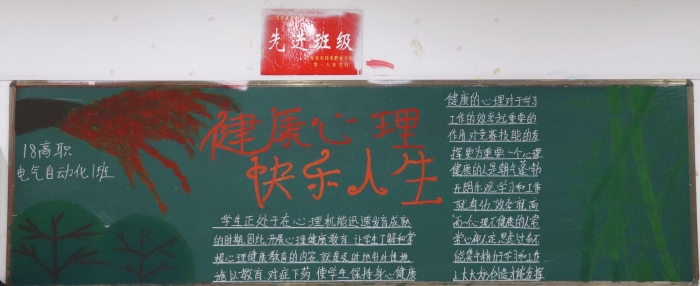 先进班级
18高职
电气自动化1班
健康心理
快乐人生
学生正处于在心理机能迅速发育成熟
的时期,因此,开展心理健康教育,让学生了解和掌
握心理健康教育的内容,就是及时地有针对性地
施以教育,对症下药,使学生保持身心健康
健康的心理对于学习
工作的效率起重要的
作用对竞赛技能的发
挥更为重要一个心理
健康的人是朝气蓬勃
开朗乐观,学习和工作
就有功效率就高
而一个心理不健康的人常
常心神不定思虑过多不
能集中精力于学习和工作